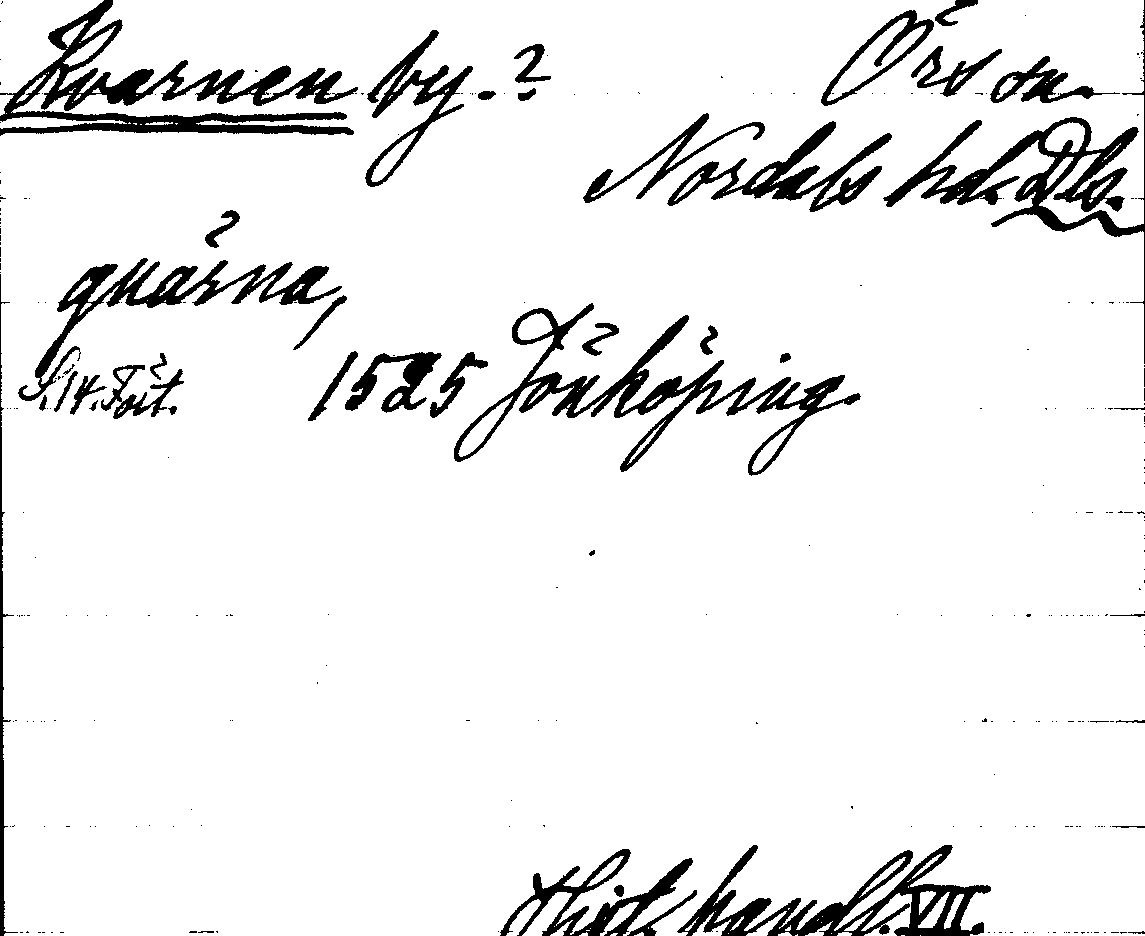 Kvarnen by.? Örs sn.
Nordals hd. Dls.
quärna,
1525 Jönköping.
Hist. handl. VII.